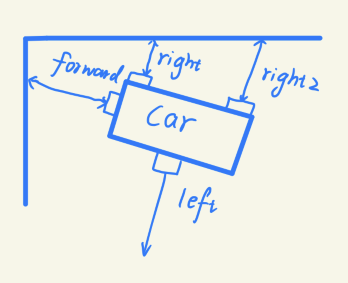 forward
right
right2
Car
left